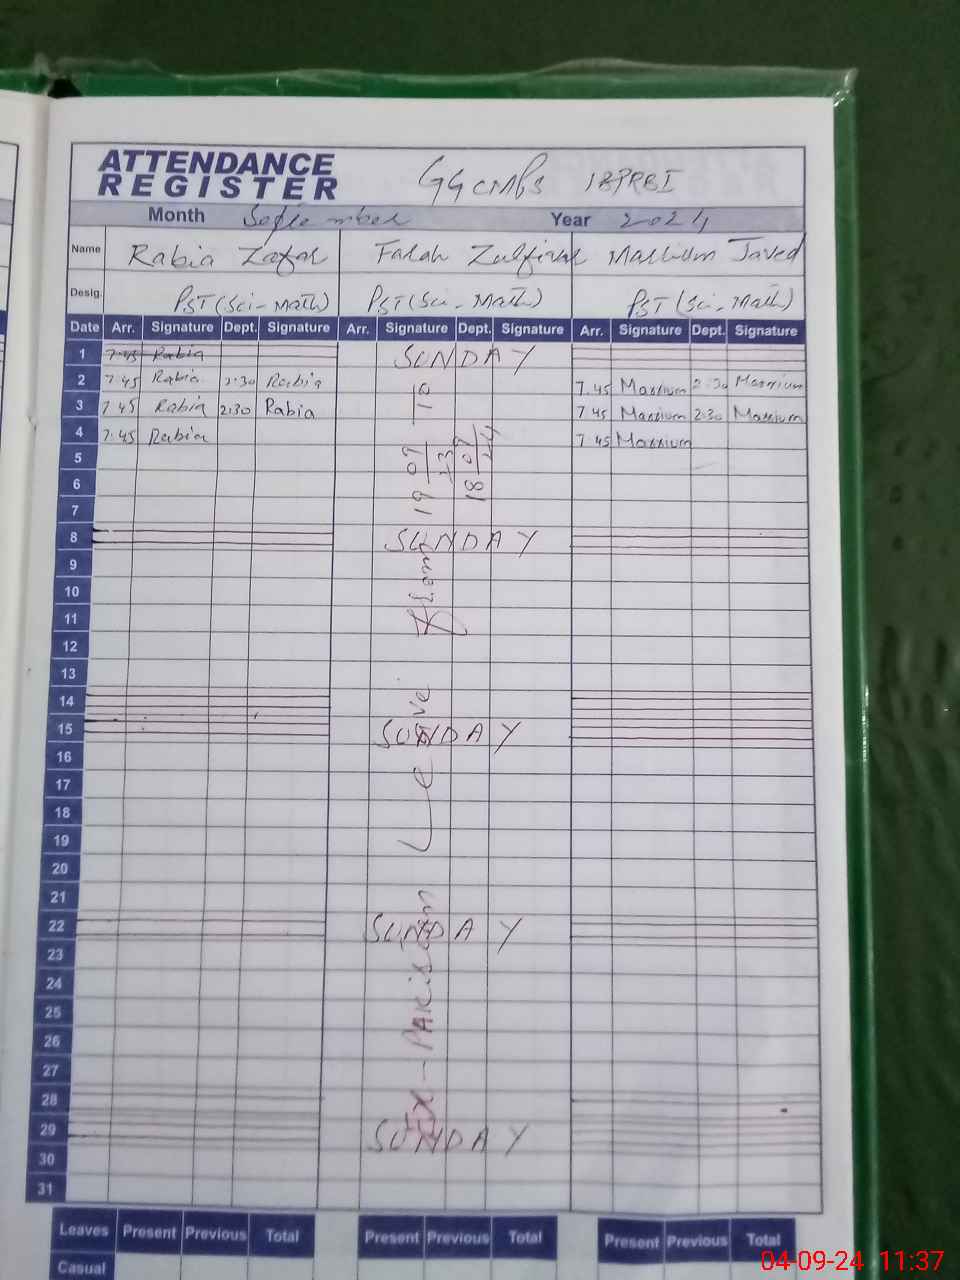 ATTENDANCE
REGISTER
18PRBI
Month September Year 2024
Name Rabia Zafar Farah Javed
Desig. PST (Sci-Math) PST (Sci-Math) PST (Sci-Math)
Date Arr. Signature Dept. Signature Arr. Signature Dept. Signature Arr. Signature Dept. Signature
1 7:45 Rabia SUNDAY
2 7.45 Rabia 2:30 Rabia 7.45 2:30
3 7 45 Rabia 2:30 Rabia 7 45 2:30
4 7:45 Rabia 7 45
5
6
7
8 SUNDAY
9
10
11
12
13
14
15 SUNDAY
16
17
18
19
20
21
22 SUNDAY
23
24
25
26
27
28
29 SUNDAY
30
31
EX-PAKISTAN Leave From 19 09 23 To 18 09 24
Leaves Present Previous Total Present Previous Total Present Previous Total
Casual
04-09-24 11:37